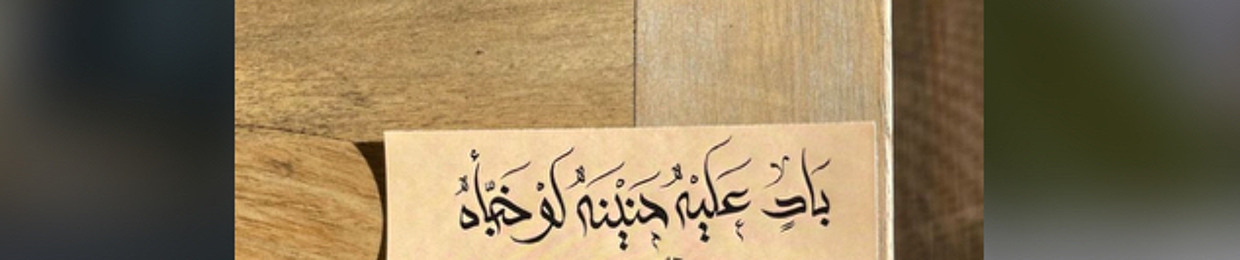 بَادٍ عَلَيْهُ حَنَيْنَهُ لَوْ خَبَّأَهُ